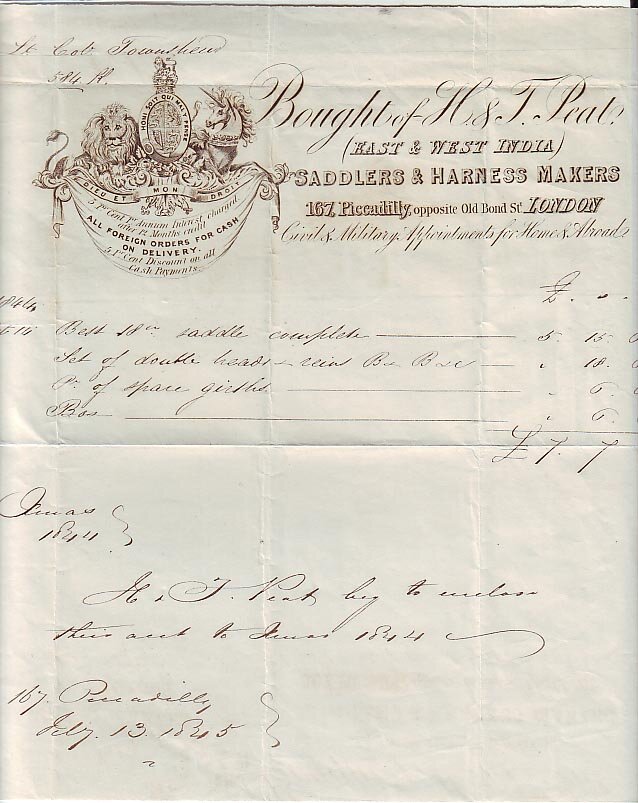 Lt Col. Townshend
HONI SOIT QUI MAL Y PENSE
DIEU ET MON DROIT
5 pr Cent pr Annum Interest charged
after 12 Months credit
ALL FOREIGN ORDERS FOR CASH
ON DELIVERY.
5 pr Cent Discount on all
Cash Payments.
Bought of H & T. Peat.
(EAST & WEST INDIA)
SADDLERS & HARNESS MAKERS
167, Piccadilly, opposite Old Bond St. LONDON
Civil & Military Appointments for Home & Abroad
£ . s .
1844
Best 18 in saddle complete 5. 15.
Set of double heads & reins 18.
Pr of spare girths 6.
Box 6.
£ 7. 7
Xmas
1844
H & T. Peat beg to enclose
their acct to Xmas 1844
167. Piccadilly
Feby. 13. 1845